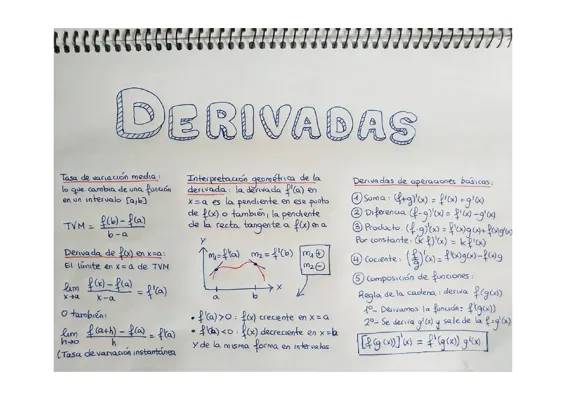 DERIVADAS
Tasa de variación media:
lo que cambia de una función
en un intervalo [a,b]
TVM = f(b) - f(a) / b - a
Derivada de f(x) en x=a:
El límite en x=a de TVM
lim x→a f(x) - f(a) / x - a = f'(a)
O también:
lim h→0 f(a+h) - f(a) / h = f'(a)
(Tasa de variación instantánea
Interpretación geométrica de la
derivada: la derivada f'(a) en
x=a es la pendiente en ese punto
de f(x) o también, la pendiente
de la recta tangente a f(x) en a
Y
m₁=f'(a) m₂=f'(b)
m₁ +
m₂ -
a b X
• f'(a)>0: f(x) creciente en x=a
• f'(b)<0: f(x) decreciente en x=b
Y de la misma forma en intervalos
Derivadas de operaciones básicas:
① Suma: (f+g)'(x) = f'(x)+g'(x)
② Diferencia (f-g)'(x) = f'(x)-g'(x)
③ Producto: (f·g)'(x) = f'(x)g(x)+f(x)g'(x)
Por constante: (k f)'(x) = k f'(x)
④ Cociente: (f/g)'(x) = f'(x)g(x)-f(x)g
⑤ Composición de funciones:
Regla de la cadena: deriva f(g(x))
1º- Derivamos la función: f'(g(x))
2º- Se deriva g'(x) y sale de la f=g'(x)
[f(g(x))]'(x) = f'(g(x)) g'(x)